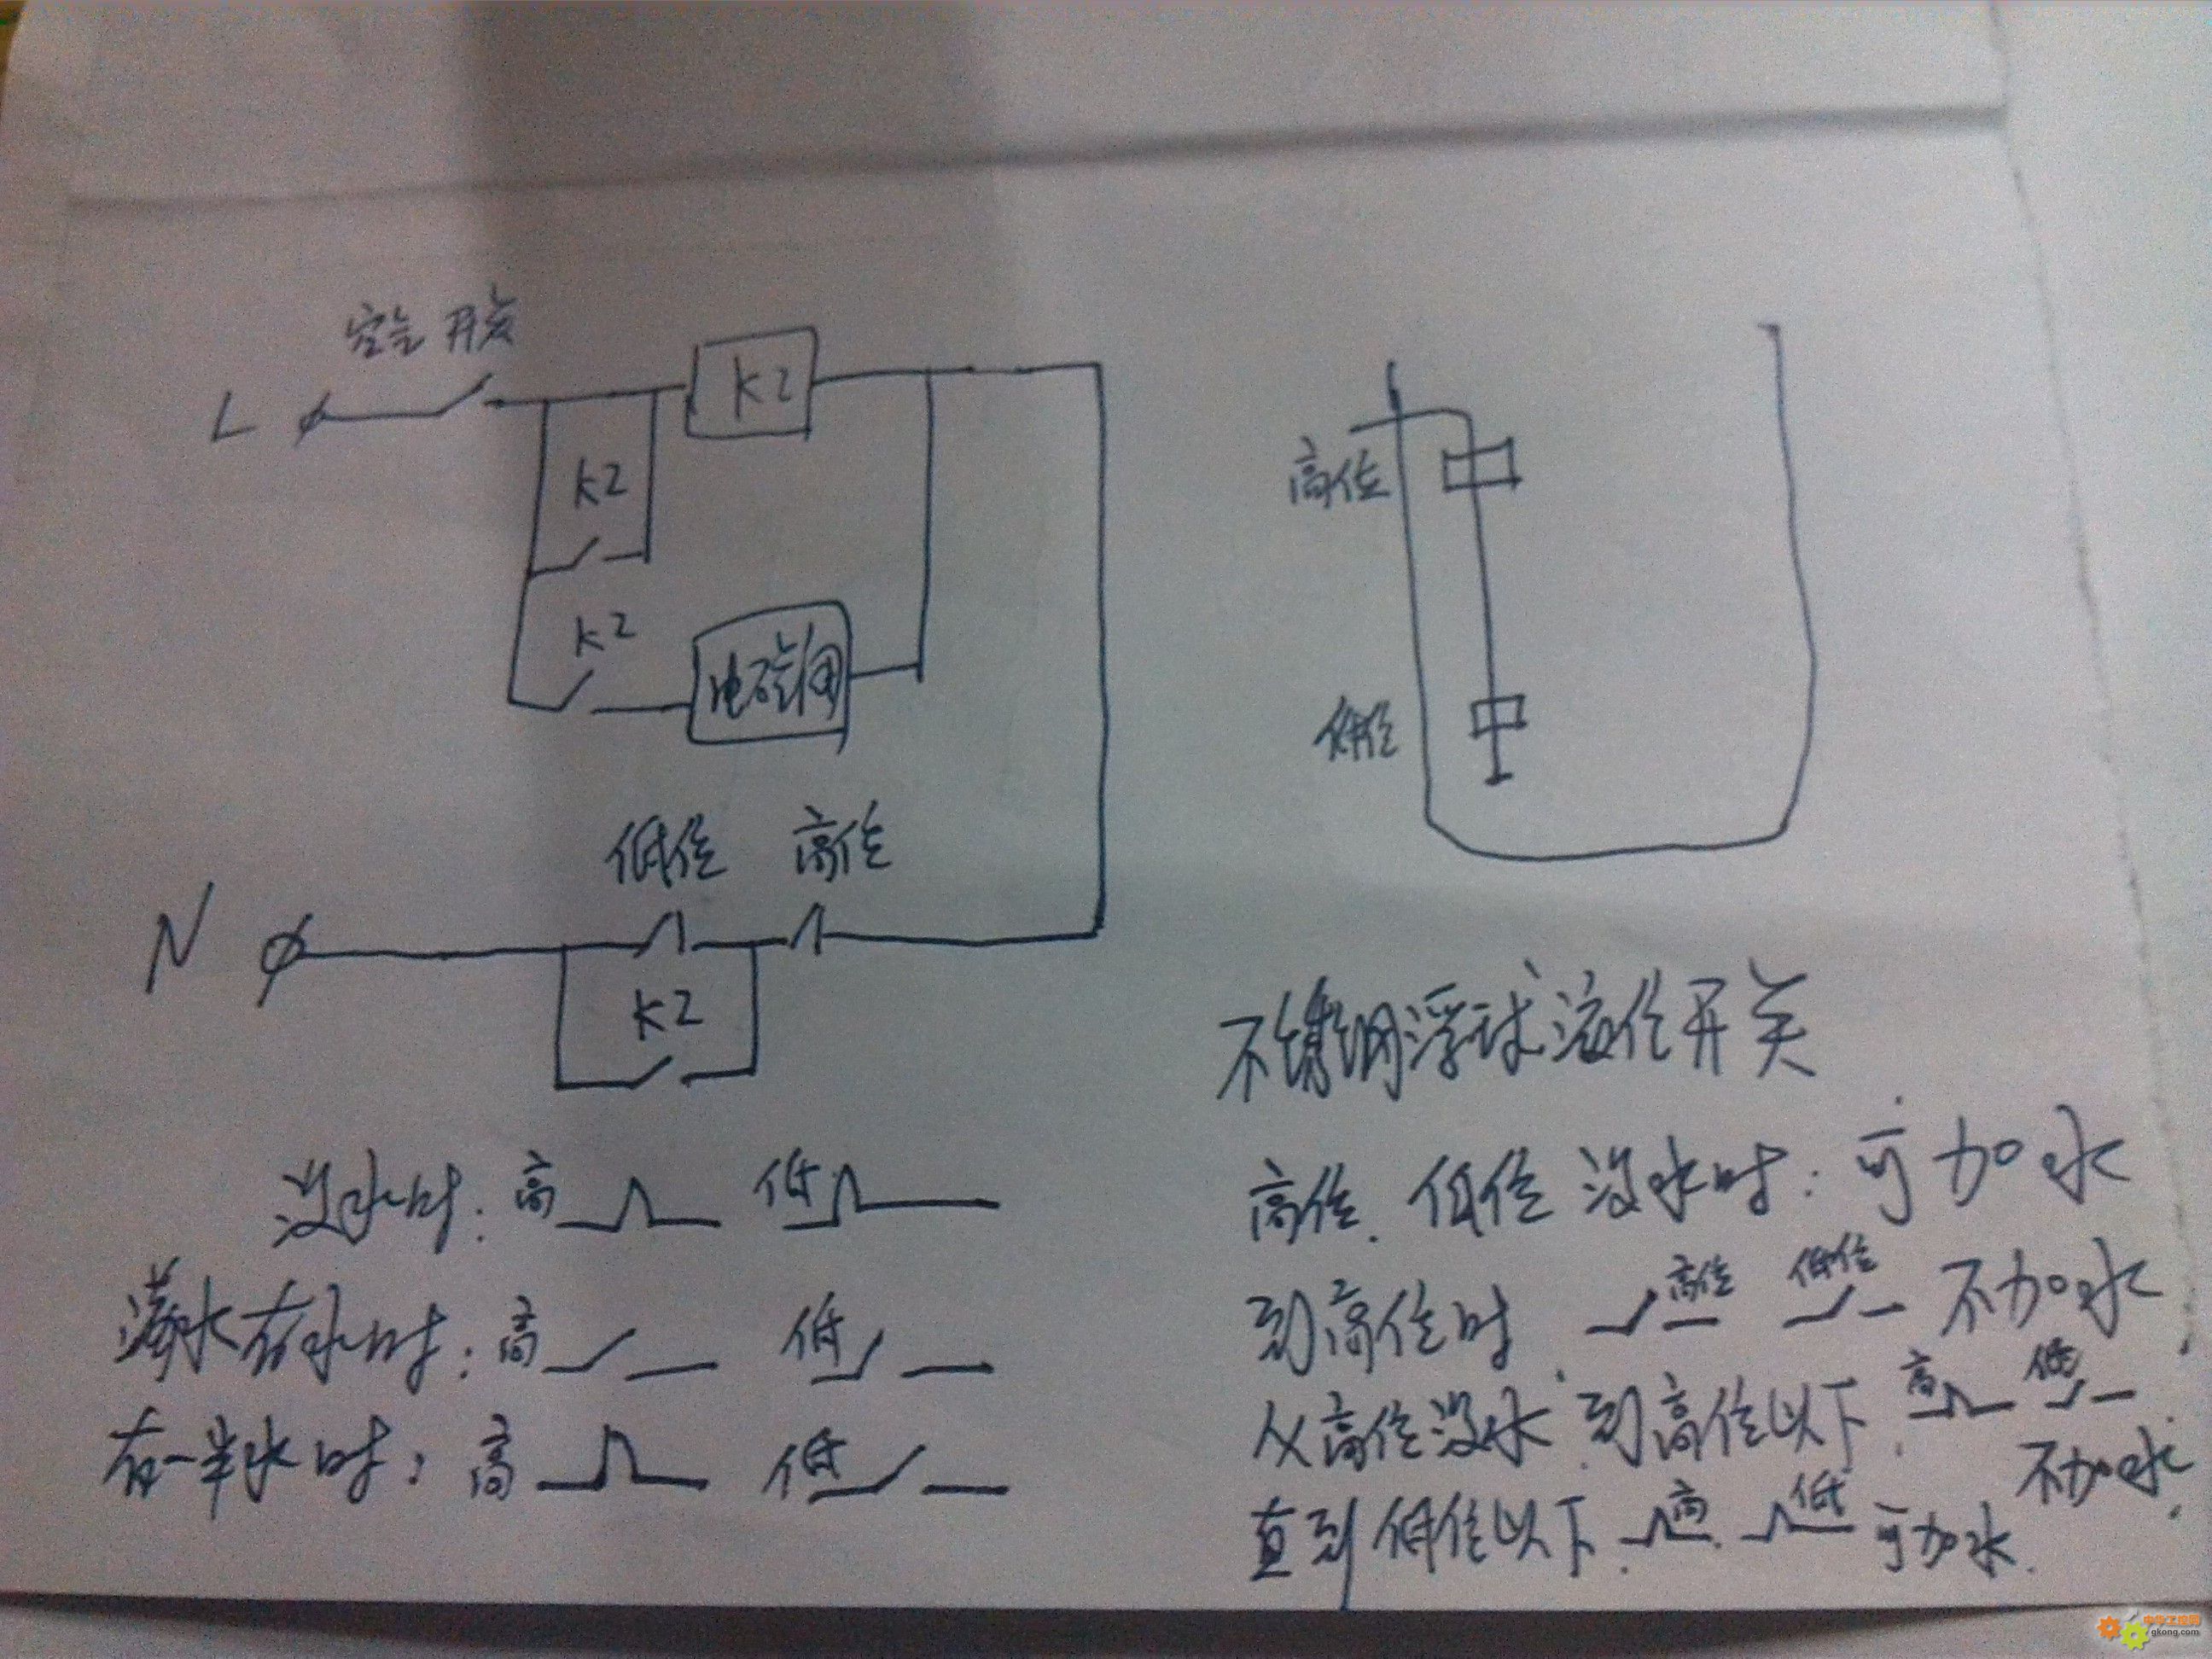 空气开关
L
K2
K2
K2
电磁阀
高位
低位
低位 高位
N
K2
不锈钢浮球液位开关
没水时: 高 低
满水有水时: 高 低
有一半水时: 高 低
高位. 低位 没水时: 可加水
到高位时. 高位 低位 不加水
从高位没水到高位以下. 高 低 不加水.
直到低位以下. 高 低 可加水.
中华工控网
gkong.com